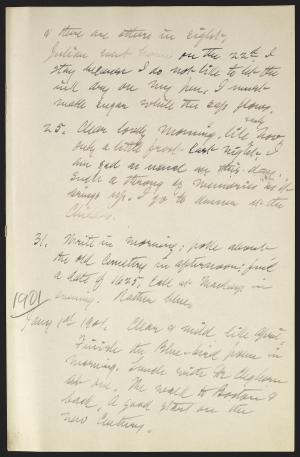 if there are others in sight.
Julian went home on the 22nd. I
stay because I do not like to let the
ink dry on my pen, I must
make sugar while the sap flows.
25. Clear lovely morning, like Nov.
only a little frost last night. I
am sad as usual on this day.
Such a throng of memories as it
brings up. I go to dinner at the
31. Write in morning; poke about
the old Cemetery in afternoon; find
a date of 1625. Call at Mackays in
evening. Rather blue.
1901
Jany 1st 1901. Clear & mild like April.
I finish the Blue-bird poem in
morning.
The walk to Boston &
back. A good start on the
new Century.